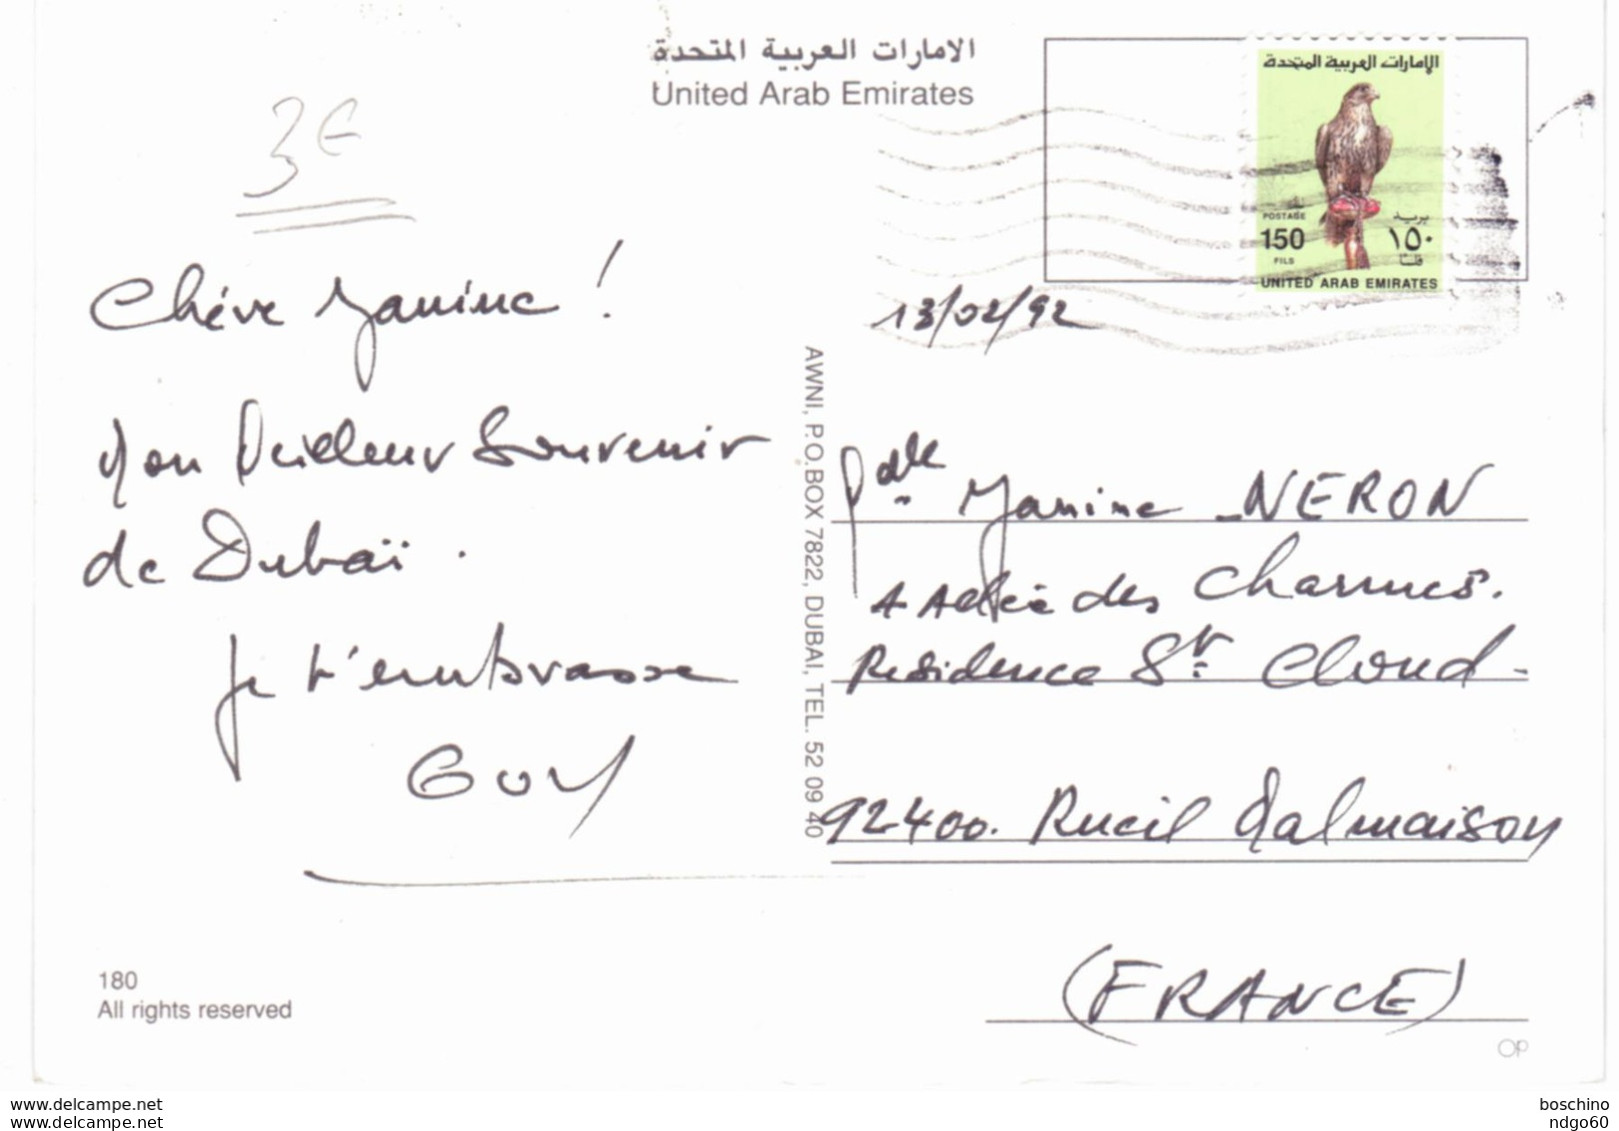 الامارات العربية المتحدة
United Arab Emirates
الإمارات العربية المتحدة
POSTAGE بريد
150 ١٥٠
FILS فلسا
UNITED ARAB EMIRATES
3€
13/02/92
Chère Janine !
Mon Meilleur Souvenir
de Dubaï .
Je t'embrasse
GUY
AWNI, P.O.BOX 7822, DUBAI, TEL. 52 09 40
Mdlle Janine NERON
4 Allée des Charmes.
Residence St Cloud -
92400. Rueil Malmaison
(FRANCE)
180
All rights reserved
OP
www.delcampe.net
www.delcampe.net
boschino
ndgo60